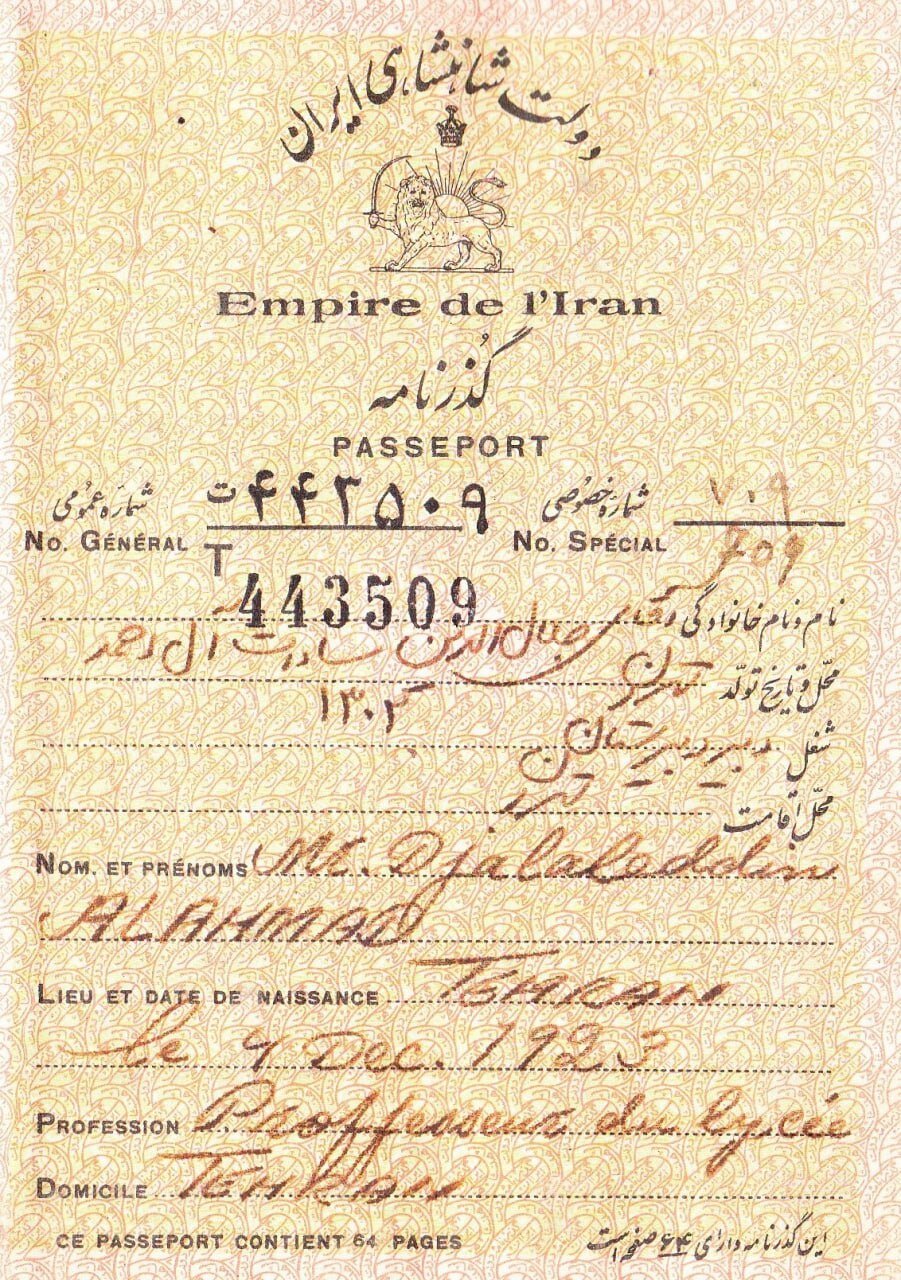 دولت شاهنشاهی ایران
Empire de l'Iran
گذرنامه
PASSEPORT
شماره عمومی ت ۴۴۳۵۰۹ شماره خصوصی ۷۰۹
No. GÉNÉRAL T 443509 No. SPÉCIAL 709
نام و نام خانوادگی آقای جلال‌الدین سادات آل احمد
محل و تاریخ تولد تهران
۱۳۰۲
شغل دبیر دبیرستان
محل اقامت
NOM. ET PRÉNOMS M. Djalaleddin
ALAHMAD
LIEU ET DATE DE NAISSANCE TEHRAN
le Dec. 1923
PROFESSION Proffesseur du lycée
DOMICILE TEHRAN
CE PASSEPORT CONTIENT 64 PAGES این گذرنامه دارای ۶۴ صفحه است